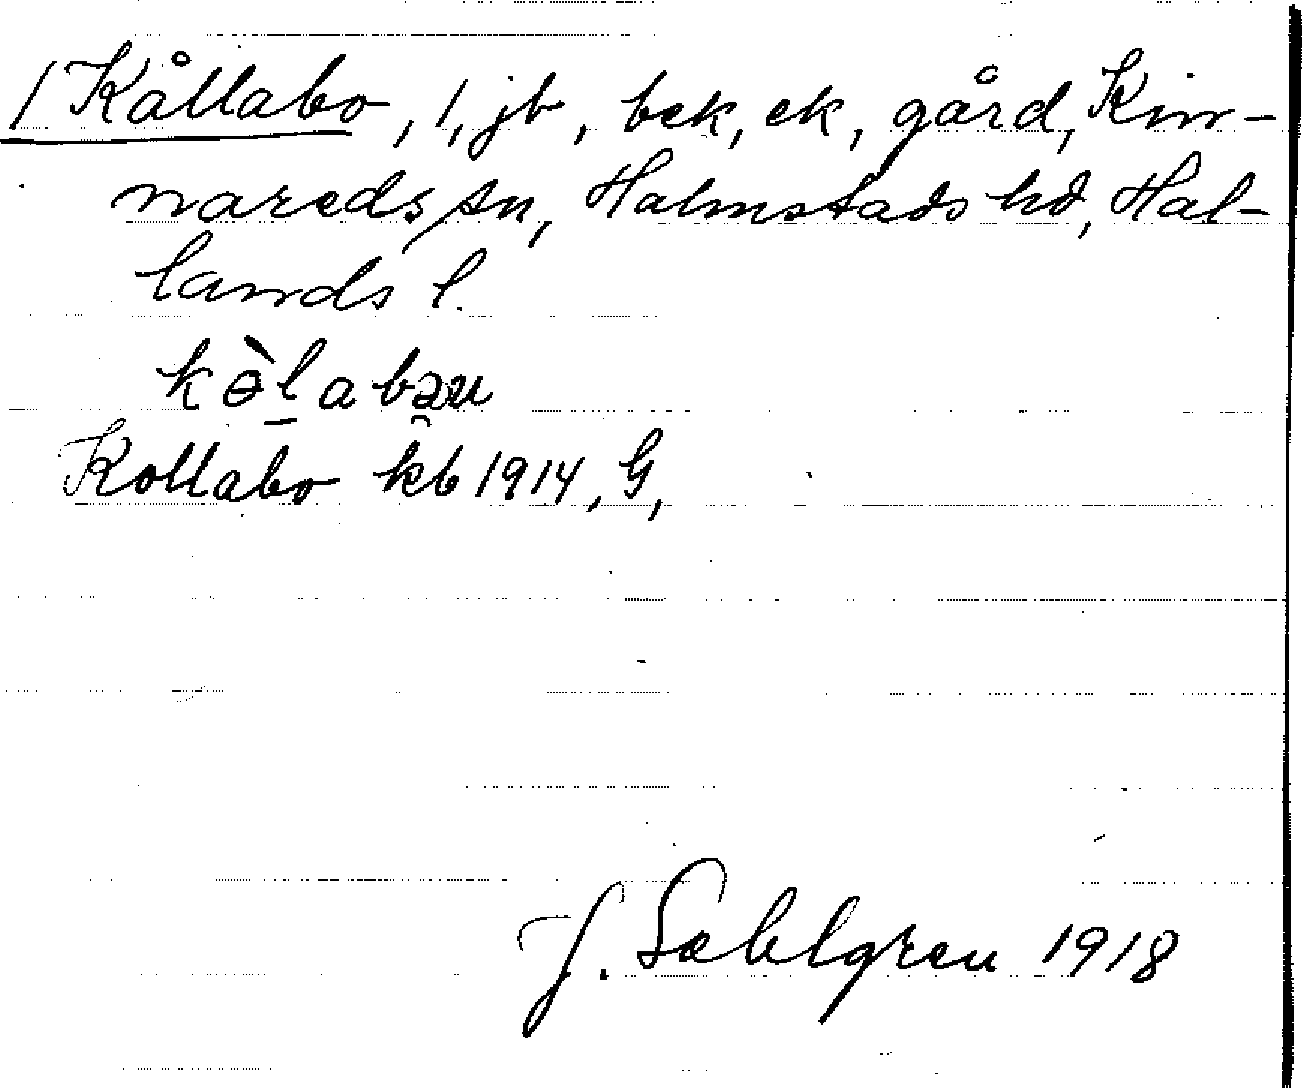 / Kållabo, 1, jb, bek, ek, gård, Kin-
nareds sn, Halmstads hd, Hal-
lands l.
kɵ̀l̠abəu̯
Kollabo kb 1914, G,
J. Sahlgren 1918